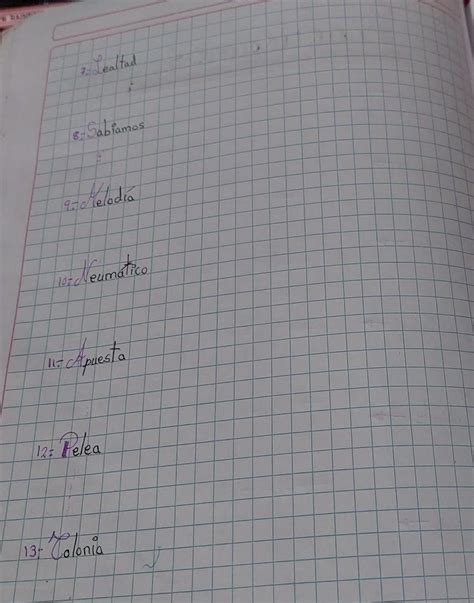 7- Lealtad
8- Sabiamos
9- Melodía
10- Neumático
11- Apuesta
12- Pelea
13- Colonia